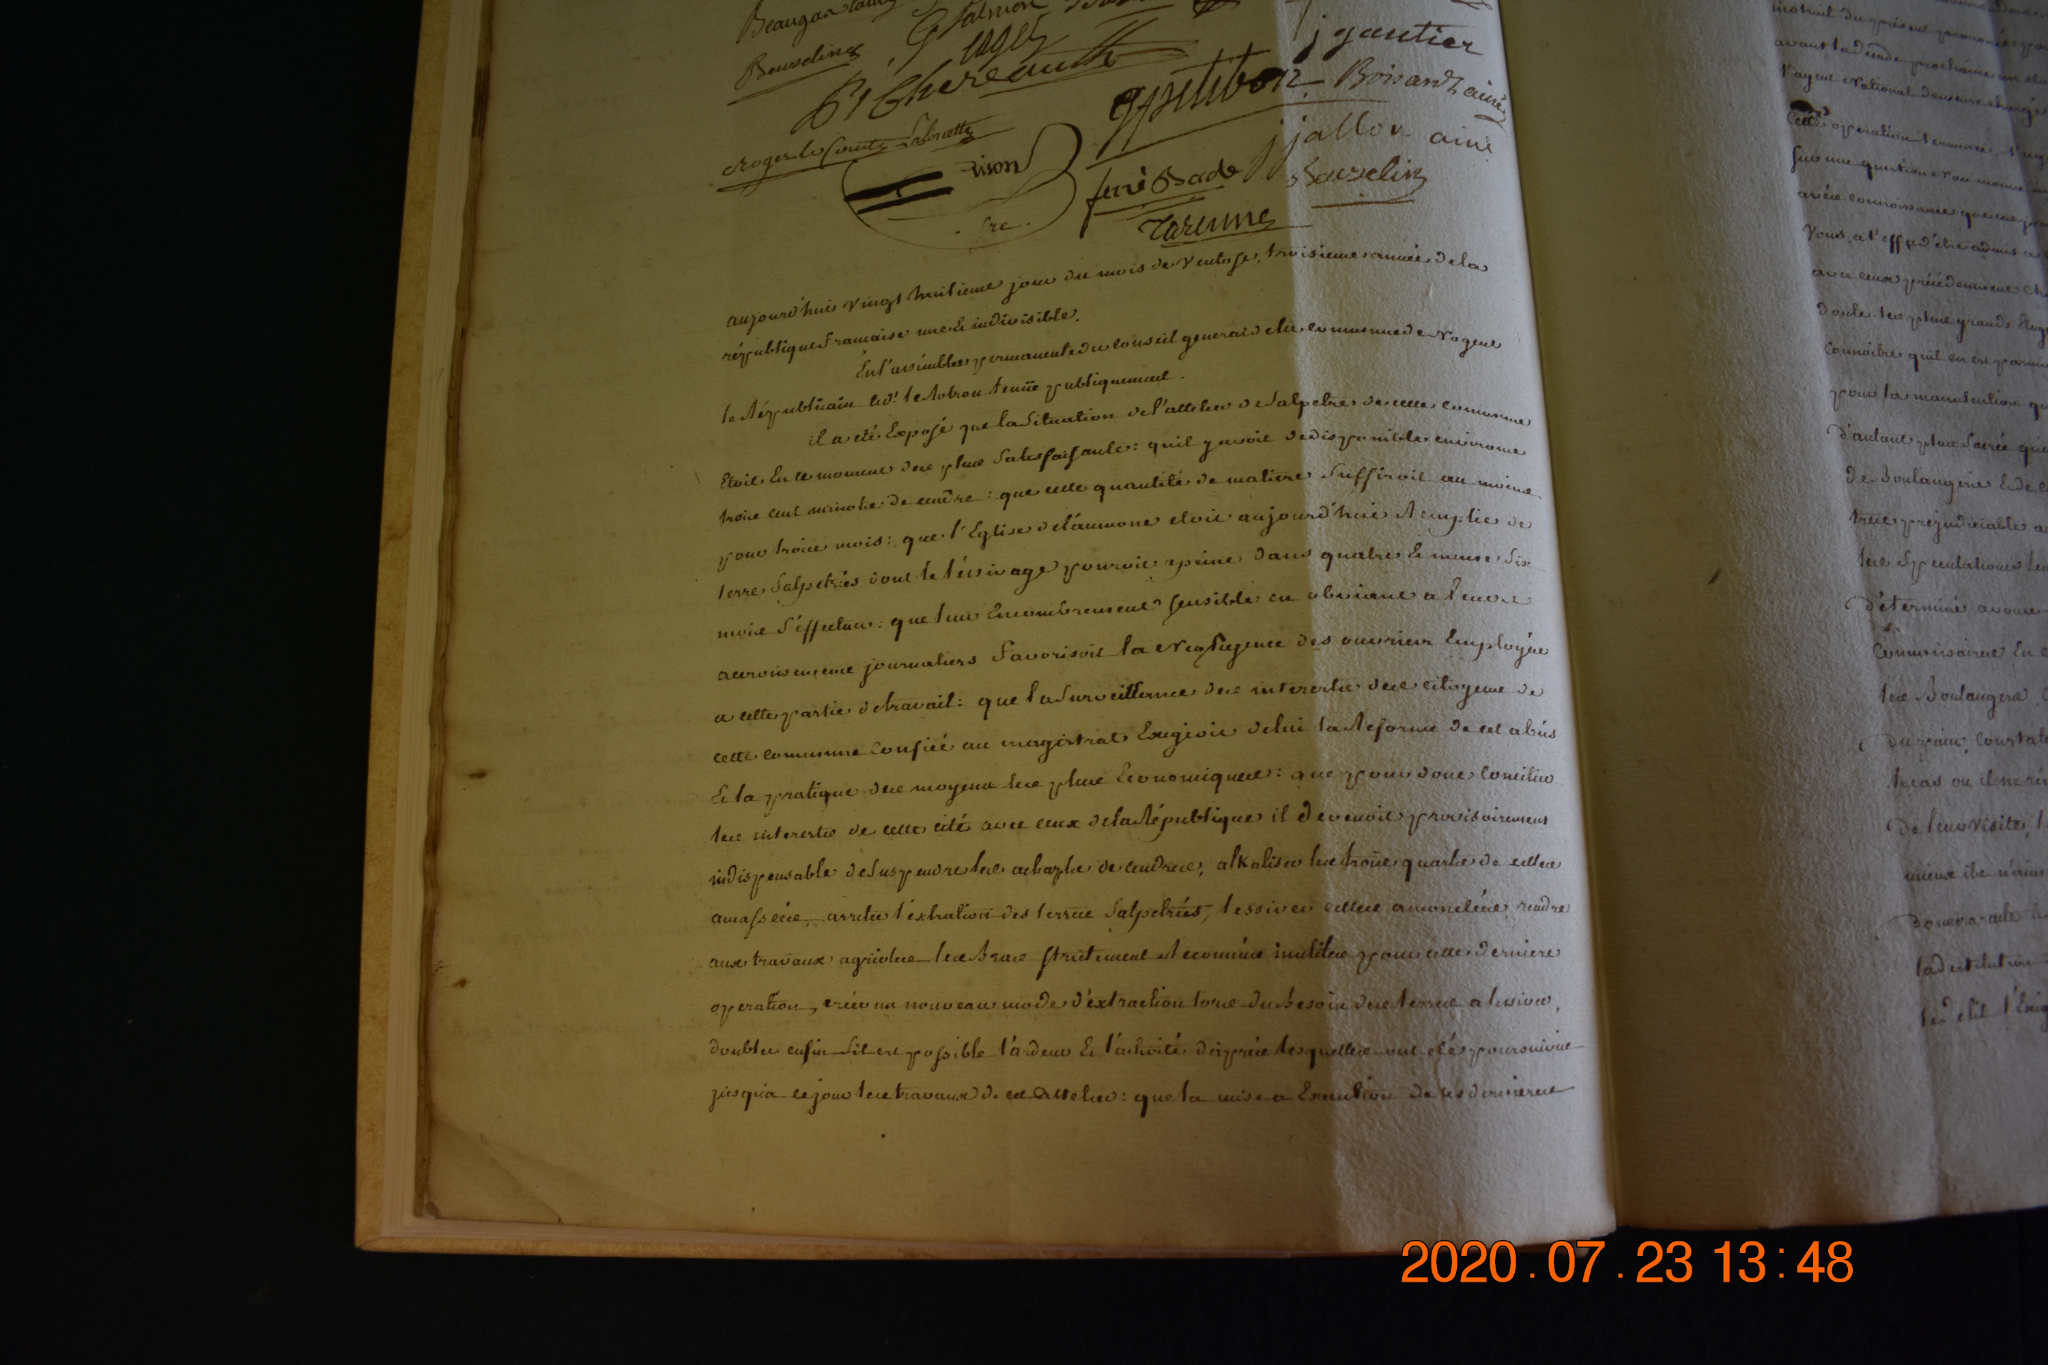 Beauselins
j gautier
Pl Chereault
gpetitbon
Boisard, ainé
Roger le Comte
jjallon ainé
rené Bade
Bauzelin
Tarenne
aujourd'huie vingt huitieme jour du mois de Ventose, troisieme année de la
république francaise une & indivisible.
En l'assemblée permanente du Conseil general de la commune de Nogent
le Républicain cid.t le Rotrou tenüe publiquement.
il a eté Exposé que la Situation de l'attelier de Salpetre de cette commune
Etoit En ce moment des plus Satisfaisante: quil y avoit de disponible environs
trois cent minots de cendre: que cette quantité de matiere Suffiroit au moins
pour trois mois: que l'Eglise de l'aumone etoit aujourd'huie Remplie de
terre Salpetrés dont le léssivage pouroit apeine dans quatre & meme Six
mois S'éffectuer: que leur Encombrement sensible en obviant a leurs
accroissement journaliers favorisoit la Negligence des ouvriers Employés
a cette partie de travail: que la Surveillance des interests des citoyens de
cette commune Confiéé au magistrat Exigeoit de lui la Reforme de cet abús
& la pratique des moyens les plus Economiques: que pour donc Concilier
les interests de cette cité avec ceux de la République il devenoit provisoirement
indispensable de Suspendre les achapts de cendres, alkaliser les trois quarts de celles
amasséés, arreter l'extration des terres Salpetriés, lessiver celles amoncelées, rendre
aux travaux agricoles les Bras strictement Reconnus inutiles pour cette derniere
operation, créer un nouveau mode d'extraction lors du Besoin des terres a lessiver,
doubler enfin Sil est possible l'ardeur & l'activité d'après lesquelles ont eté poursuivies
jusqu'a ce jour les travaux de cet Attelier: que la mise a Exécution de ces dernieres
avant la decade prochaine un
l'agent National
Cette operation terminée,
Sur une question non moins
avec connoissance que
Vous, a l'effet d'etre admis a
avec ceux précédemment
doute les plus grands
Connoitre quil en est parmi
pour la manutention
d'autant plus Sacrée que
de Boulangerie & de
très préjudiciable a
les Spéculations
déterminé
Commissaires En
les Boulangers
du pain, Constate
le cas ou il ne
de leurs visites,
mieux ils n'aim
donnera acte
la destitution
le dit l'Exige
2020.07.23 13:48